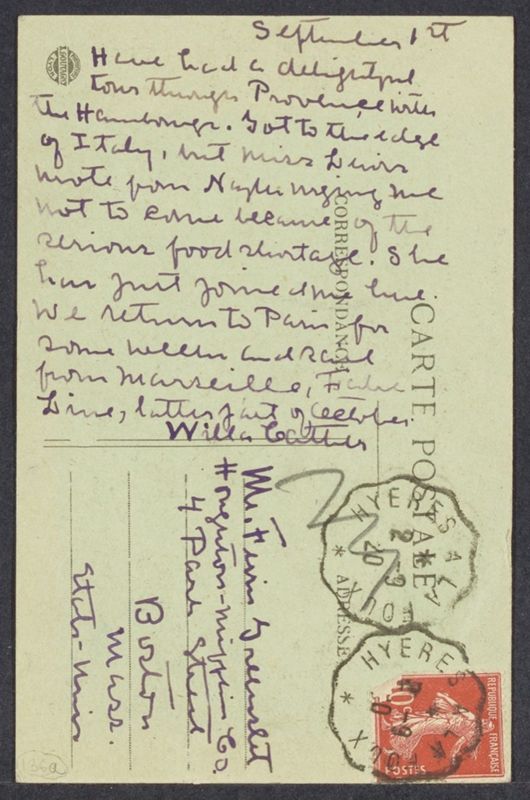 September 1st
Have had a delightful
tour through Provence with
the Hambourgs. Got to the edge
of Italy, but Miss Lewis
wrote from Naples urging me
not to come because of the
serious food shortage. She
has just joined me here.
We return to Paris for
some weeks and sail
from Marseille, Fabre
Line, latter part of October.
Willa Cather
CARTE POSTALE
CORRESPONDANCE
ADRESSE
Mr. Ferris Greenslet
Houghton-Mifflin Co.
4 Park Street
Boston
Mass.
Etats-Unis
HYERES A
2 - 9
20
HYERES A
REPUBLIQUE FRANÇAISE
10
POSTES
136a